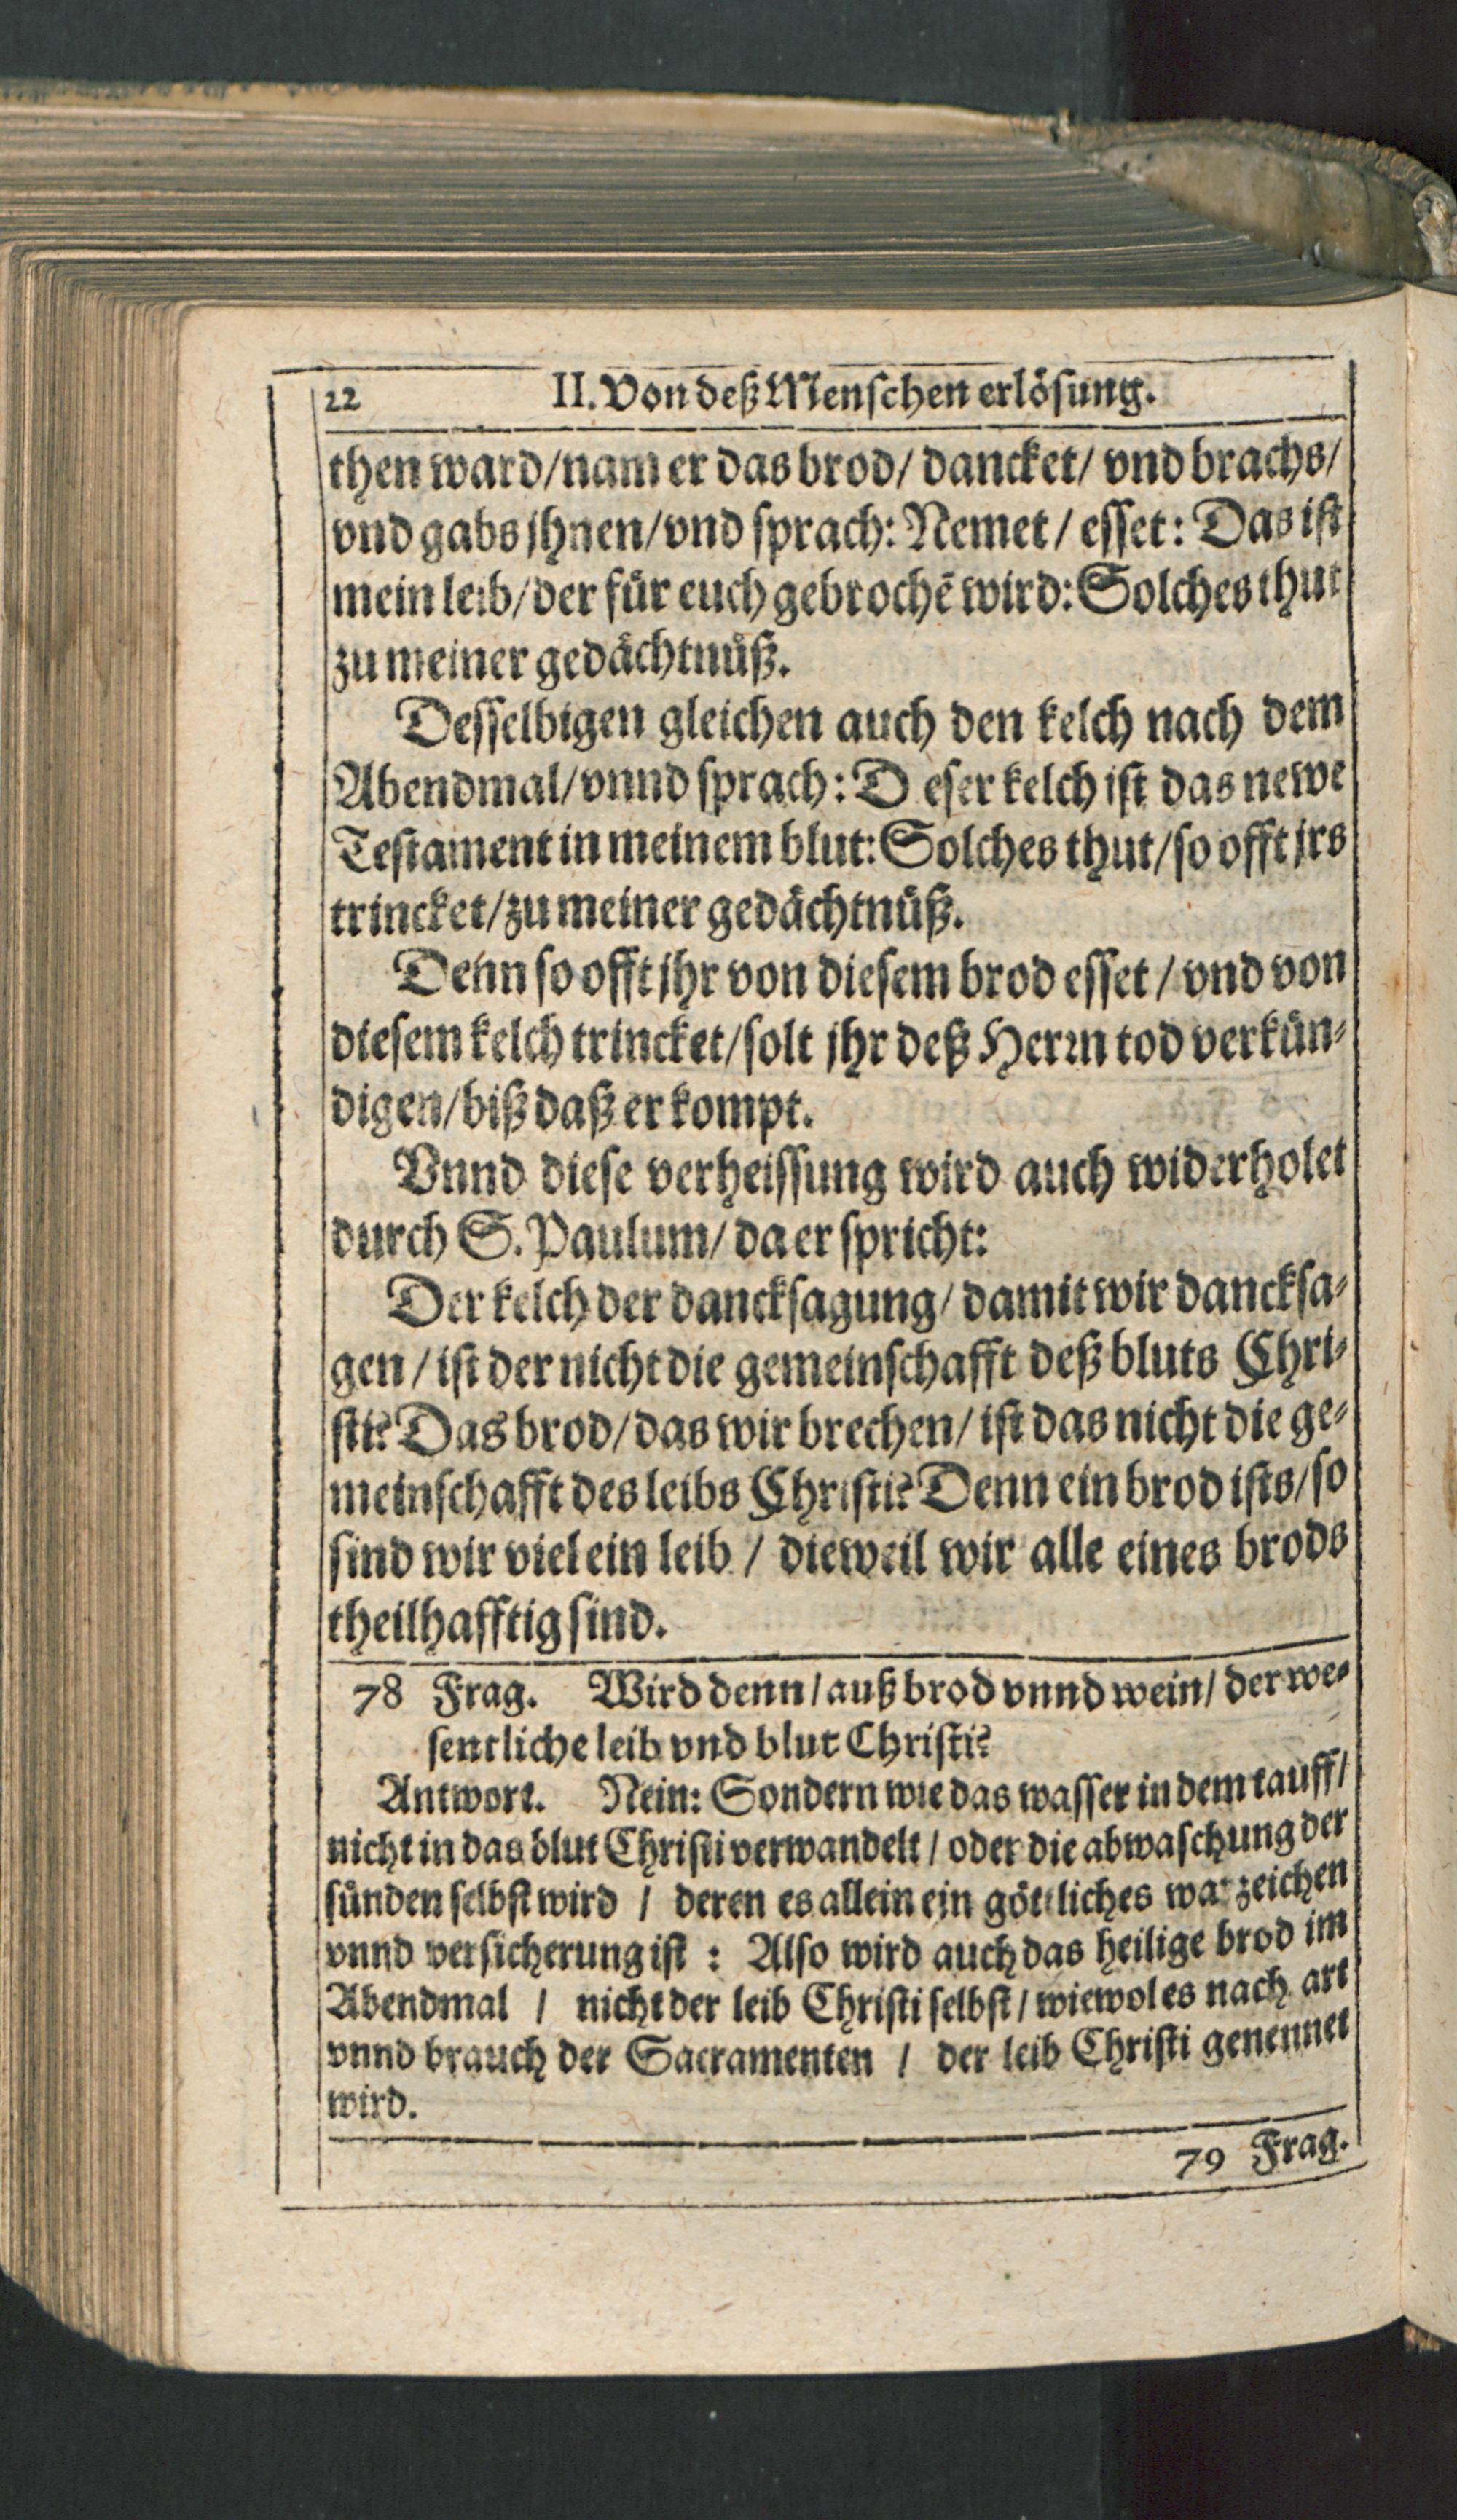 22 II. Von deß Menschen erlösung.
then ward/nam er das brod/ dancket/ vnd brachs/
vnd gabs jhnen/vnd sprach: Nemet / esset: Das ist
mein leib/der für euch gebrochē wird: Solches thut
zu meiner gedächtnüß.
Desselbigen gleichen auch den kelch nach dem
Abendmal/vnnd sprach: D eser kelch ist das newe
Testament in meinem blut: Solches thut/so offt jrs
trincket/zu meiner gedächtnüß.
Denn so offt jhr von diesem brod esset / vnd von
diesem kelch trincket/solt jhr deß Herrn tod verkün-
digen/biß daß er kompt.
Vnnd diese verheissung wird auch widerholet
durch S. Paulum/ da er spricht:
Der kelch der dancksagung/ damit wir dancksa-
gen / ist der nicht die gemeinschafft deß bluts Chri-
sti? Das brod/das wir brechen/ ist das nicht die ge-
meinschafft des leibs Christi? Denn ein brod ists/so
sind wir viel ein leib / dieweil wir alle eines brods
theilhafftig sind.
78 Frag. Wird denn/auß brod vnnd wein/ der we-
sentliche leib vnd blut Christi?
Antwort. Nein: Sondern wie das wasser in dem tauff/
nicht in das blut Christi verwandelt / oder die abwaschung der
sünden selbst wird / deren es allein ein göttliches warzeichen
vnnd versicherung ist : Also wird auch das heilige brod im
Abendmal / nicht der leib Christi selbst/ wiewol es nach art
vnnd brauch der Sacramenten / der leib Christi genennet
wird.
79 Frag.